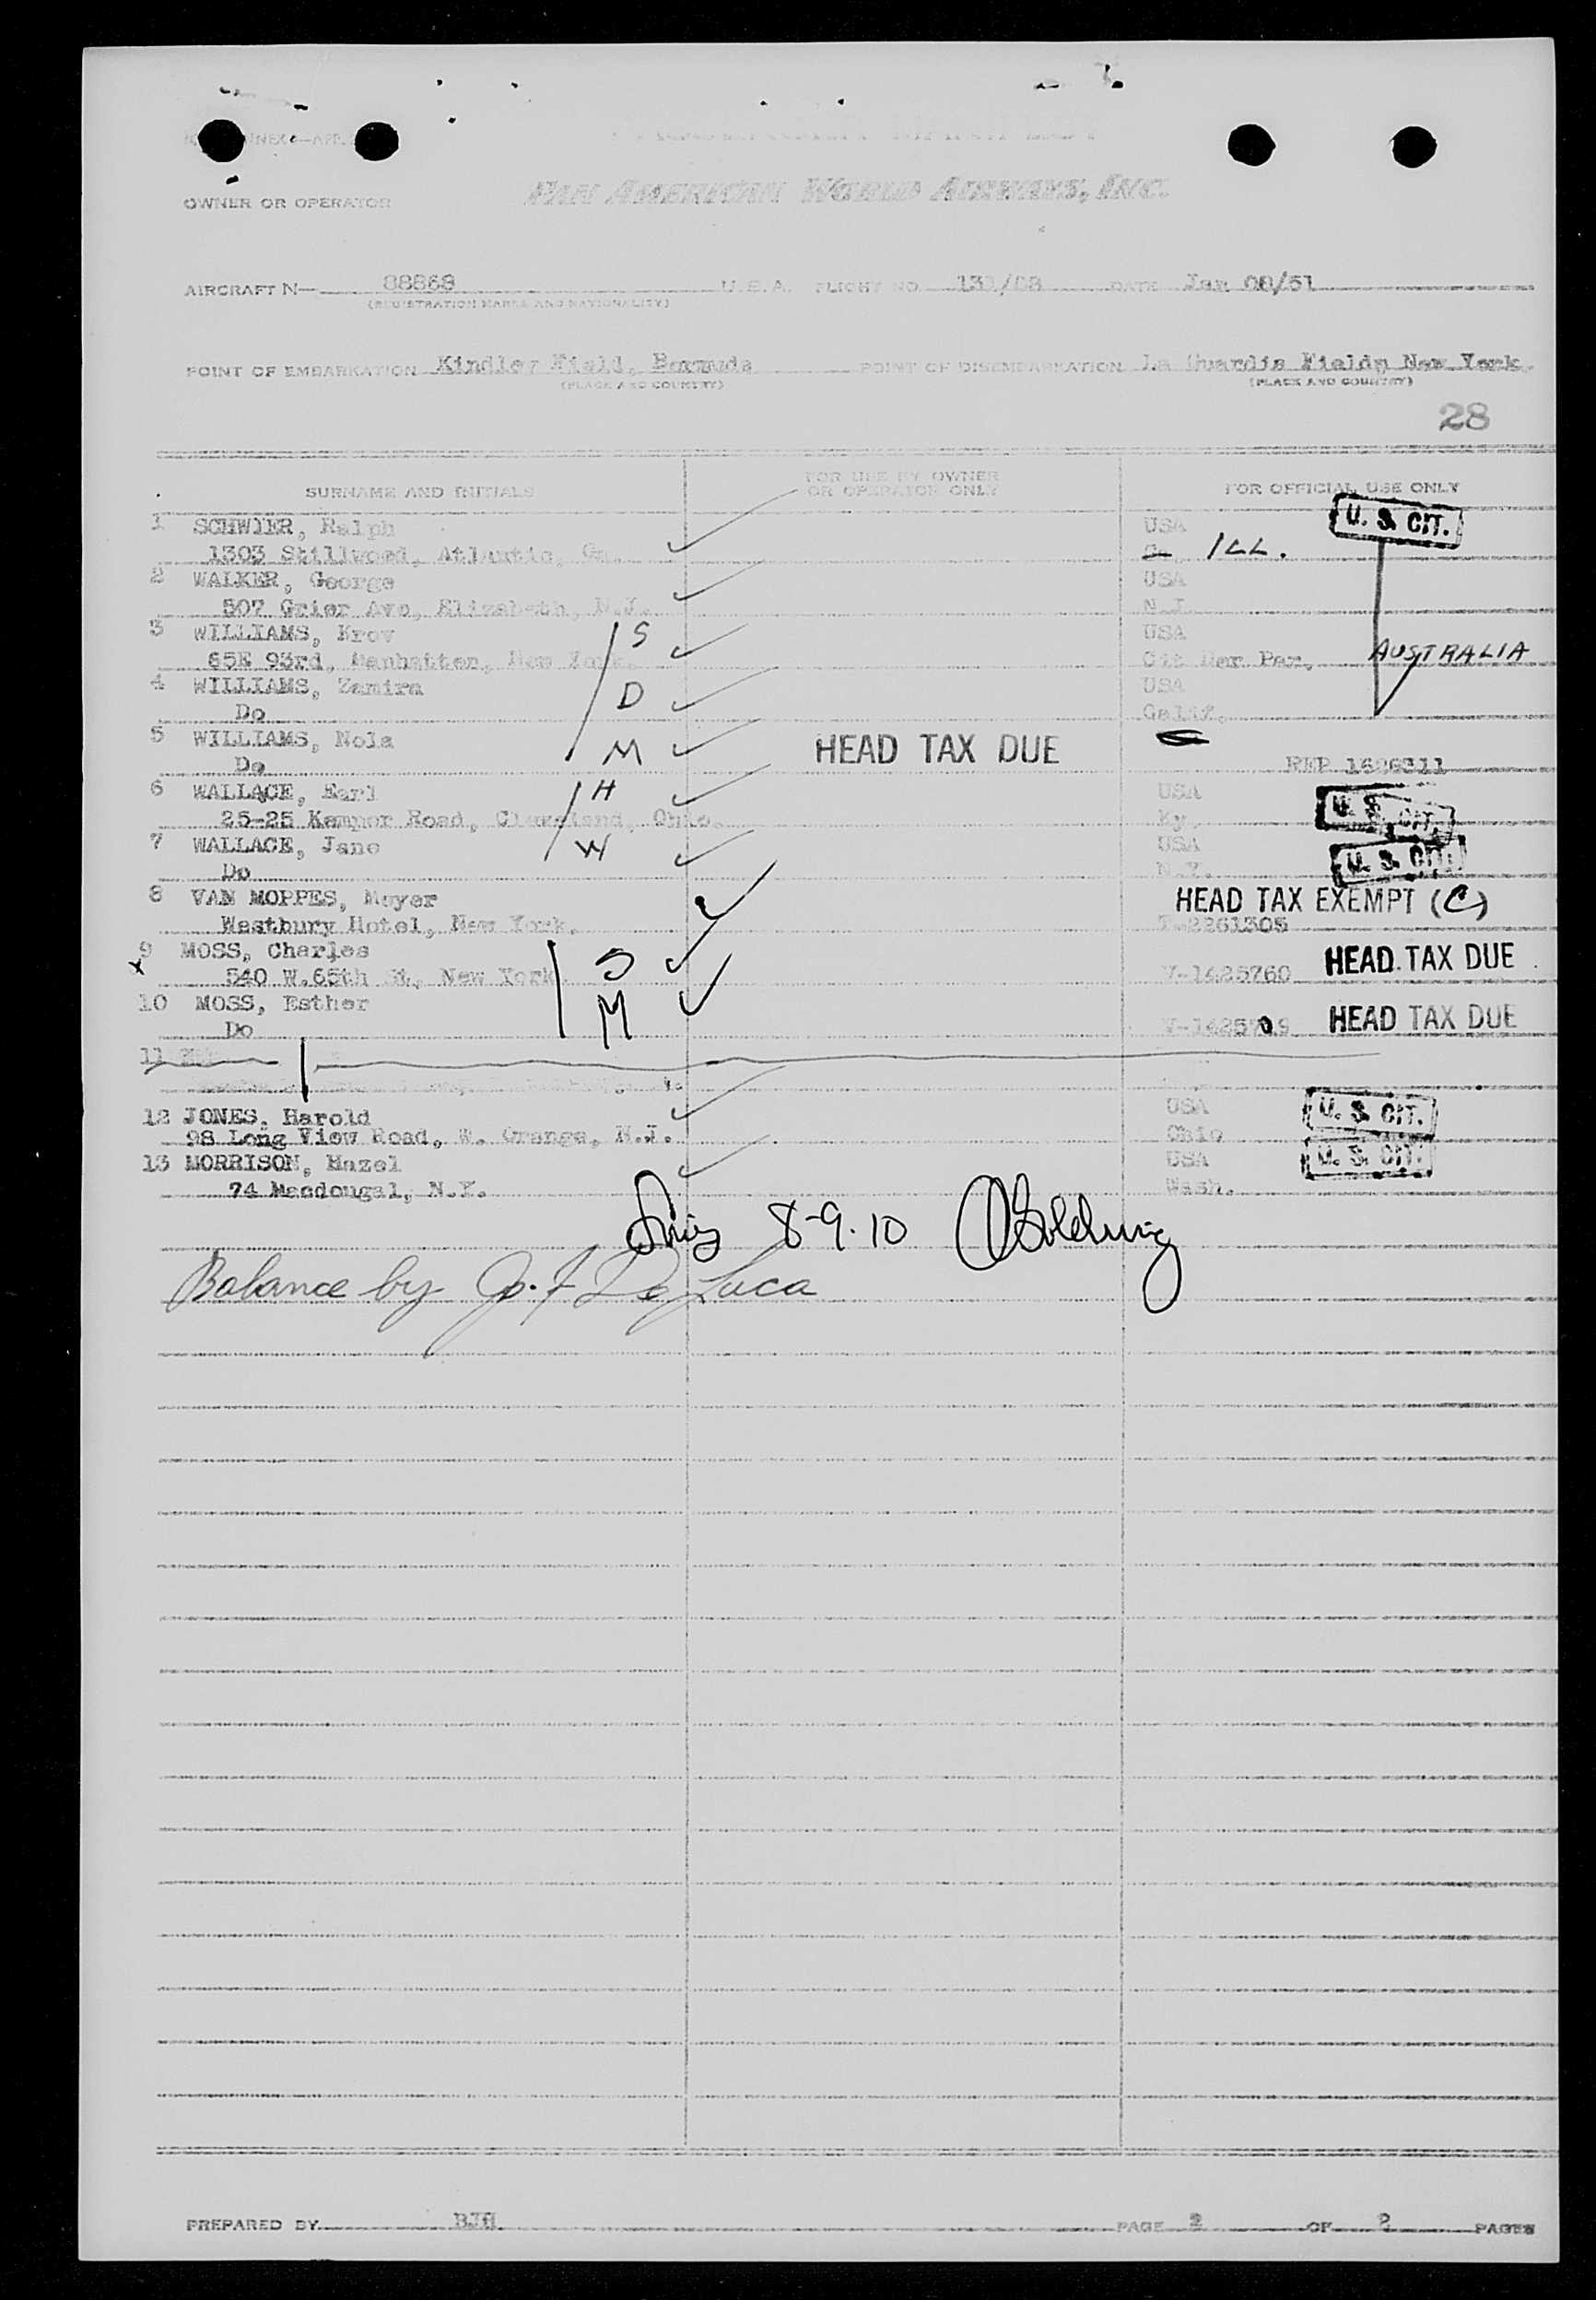 OWNER OR OPERATOR PAN AMERICAN WORLD AIRWAYS, INC.
AIRCRAFT N— 88868 U.S.A. FLIGHT NO. 131/08 DATE Jan 08/51
(REGISTRATION MARKS AND NATIONALITY)
POINT OF EMBARKATION Kindley Field, Bermuda POINT OF DISEMBARKATION La Guardia Field, New York.
(PLACE AND COUNTRY) (PLACE AND COUNTRY)
28
SURNAME AND INITIALS FOR USE BY OWNER OR OPERATOR ONLY FOR OFFICIAL USE ONLY
1 SCHWIER, Ralph USA U. S. CIT.
1303 Stillwood, Atlantic, Ga. Ga. ILL.
2 WALKER, George USA
507 Grier Ave, Elizabeth, N.J. N.J.
3 WILLIAMS, Krov S USA
65E 93rd, Manhatten, New York. Par. AUSTRALIA
4 WILLIAMS, Zamira D USA
Do Calif.
5 WILLIAMS, Nola M HEAD TAX DUE
Do REP
6 WALLACE, Earl H USA U. S. CIT.
25-25 Kemper Road, Cleveland, Ohio. Ky.
7 WALLACE, Jane W USA U. S. CIT.
Do N.Y.
8 VAN MOPPES, Meyer HEAD TAX EXEMPT (C)
Westbury Hotel, New York. 2261305
x9 MOSS, Charles S HEAD TAX DUE
540 W.65th St, New York V-1425760
10 MOSS, Esther M HEAD TAX DUE
Do
11
12 JONES, Harold USA U. S. CIT.
98 Long View Road, W. Orange, N.J. Ohio
13 MORRISON, Hazel USA U. S. CIT.
74 Macdougal, N.Y. Wash.
8-9-10
Balance by De Luca
PREPARED BY PAGE 2 OF 2 PAGES